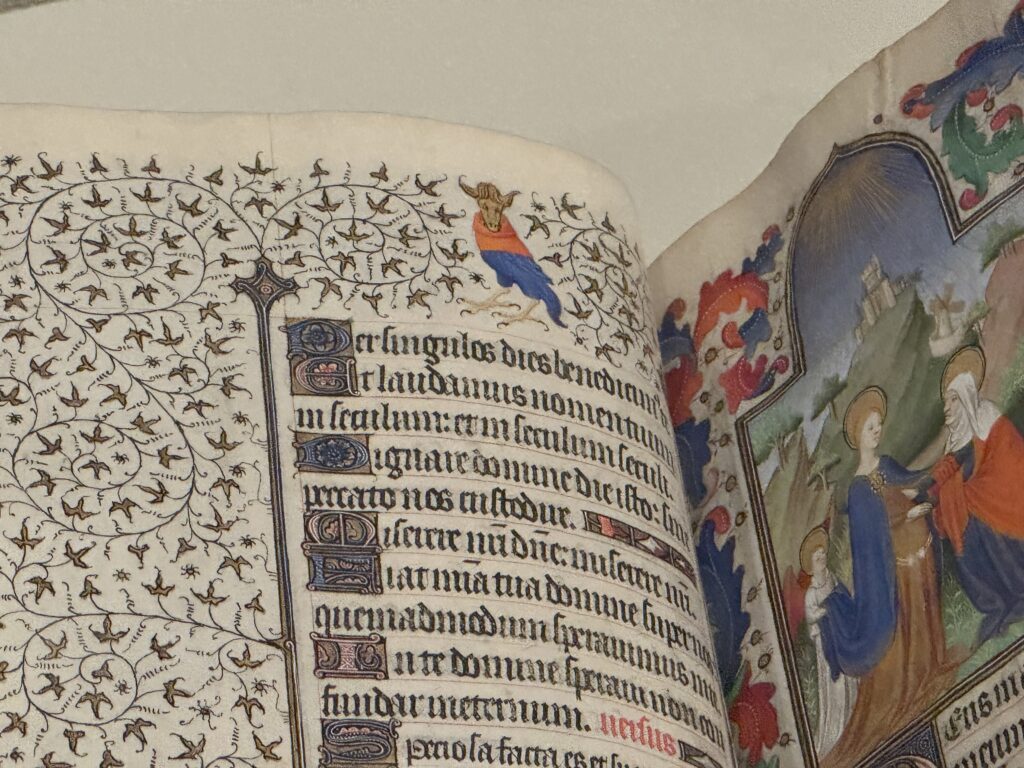 Per singulos dies benedicim⁹
Et laudamus nomen tuum
in seculum: et in seculum seculi.
Dignare domine die isto: sine
peccato nos custodire.
Miserere nr̄i dn̄e: miserere nr̄i.
Fiat mīa tua domine super nos
quemadmodum sperauimus in te
In te domine speraui non con
fundar ineternum. uersus
Speciosa facta es et su
Eus in a